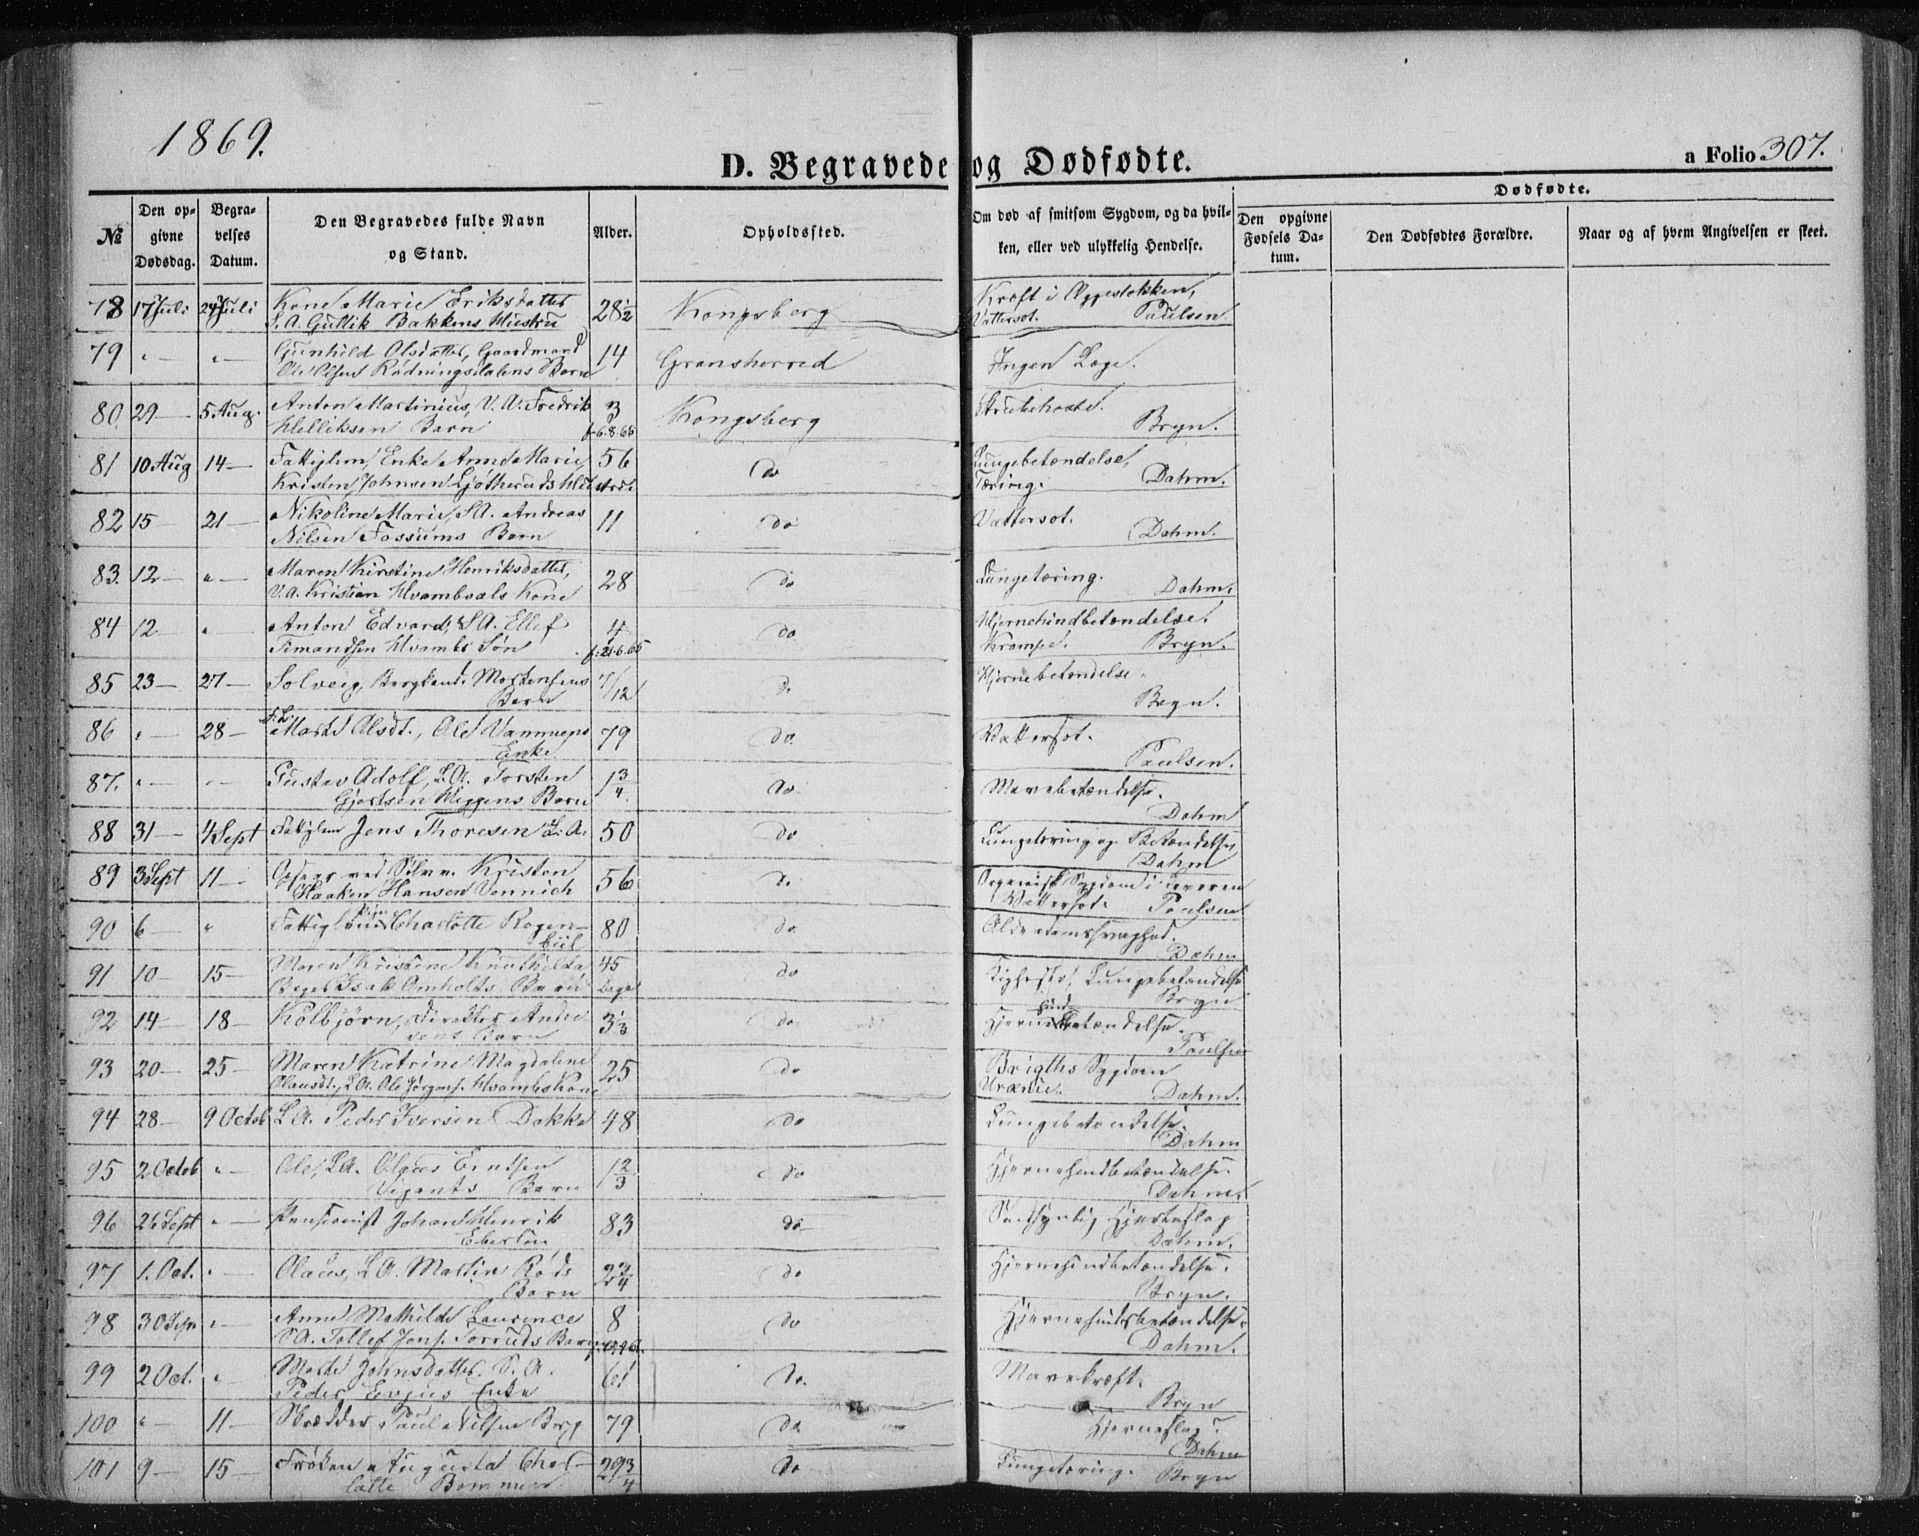 1869.
D. Begravede og Dødfødte.
a Folio 307.
№
Den opgivne Dødsdag.
Begravelses Datum.
Den Begravedes fulde Navn og Stand.
Alder.
Opholdssted.
Om død af smitsom Sygdom, og da hvilken, eller ved ulykkelig Hendelse.
Dødfødte.
Den opgivne Fødsels Datum.
Den Dødfødtes Forældre.
Naar og af hvem Angivelsen er skeet.
78 17 Juli 24 Juli Kone Marie Eriksdatter 28 1/2 Kongsberg Kræft i Æggestokken,
S.A. Gullik Bakkens Hustru Vattersot. Paulsen
79 " " Gunhild Olsdatter, Gaardmand 14 Gransherred Ingen Læge.
Ole Olsens Rødningsdalens Barn
80 29 — 5 Aug. Anton Martinius, V.A. Fredrik 3 Kongsberg Strubehoste.
Helliksen Barn f. 6.8.65 Bryn.
81 10 Aug 14 — Fattiglem, Enke Anne Marie 56 do Lungebetændelse,
Kristen Johnsen Ljøtheruds Hustru Tæring. Dahm.
82 15 — 21 — Nikoline Marie, S.A. Andreas 11 do Vattersot.
Nilsen Fossums Barn Dahm.
83. 12 — " — Maren Kirstine Henriksdatter, 28 do Lungetæring.
V.A. Kristian Hvambsals Kone Dahm.
84 12 " — Anton Edvard, S.A. Ellef 4 do Hjernehindbetændelse.
Timandsen Hvambs Søn f. 21.6.65 Krampe. Bryn.
85 23 — 27 — Solveig, Bergkand. Mortensens 7/12 do Hjernebetændelse.
Barn Bryn.
86 " 28 — F.L. Marte Olsdt., Ole 79 do Vattersot.
Enke Paulsen.
87. " — " — Gustav Adolf, S.A. Torsten 1 3/4 do Mavebetændelse.
Gjertsen Barn Dahm
88 31 — 4 Sept Fattiglem Jens Thoresen S.A. 50 do Lungetæring og Betændelse
Dahm
89 3 Sept 11 — Opsyer ved Sølvv. Kristen 56 do Organisk Sygdom i Leveren
Haaken Hansen Vennich Vattersot. Paulsen
90 6 — " Fattiglem Pige Charlotte Rogen- 80 do Alderdomssvaghed.
biil Dahm
91 10 — 15 — Maren Kristine Knuthilda 45 do Kighoste, Lungebetændelse
Isak Omholts Barn Dage Bryn
92 14 — 18 — Kolbjørn, Direktør Andre- 3 1/3 do Hjernehindbetændelse.
sens Barn Paulsen
93 20 — 25 — Maren Katrine Magdalene 25 do Brigths Sygdom
Olausdt., S.A. Ole Jørgens. Hvambs Kone Uræmie. Dahm.
94 28 — 9 Octob S.A. Peder Iversen Dokke 48 do Lungebetændelse.
Dahm
95 2 Octob " — Ole, S.A. Olaus Erntsen 1 2/3 do Hjernehindbetændelse.
Vigants Barn Dahm.
96 26 Sept " — Pensionist Johan Henrik 83 do Sandsynlig Hjerteslag
Eberlin Dahm.
97 1. Oct. " — Olaus, S.A. Martin Røds 2 3/4 do Hjernehindbetændelse.
Barn Bryn.
98 30 Sept " — Anne Mathilde Laurence 8 do Hjernehindebetændelse.
S.A. Tollef Jons. Torruds Barn Dahm.
99 2 Oct. " Marte Johnsdatter S.A. 61 do Mavekræft.
Peder Evjus Enke Bryn
100 " 11 — Skrædder Paul Nilsen Berg 79 do Hjerneslag
Dahm
101 9 — 15 — Frøken Augusta Char- 29 3/4 do Lungetæring. Bryn
lotte Bommen